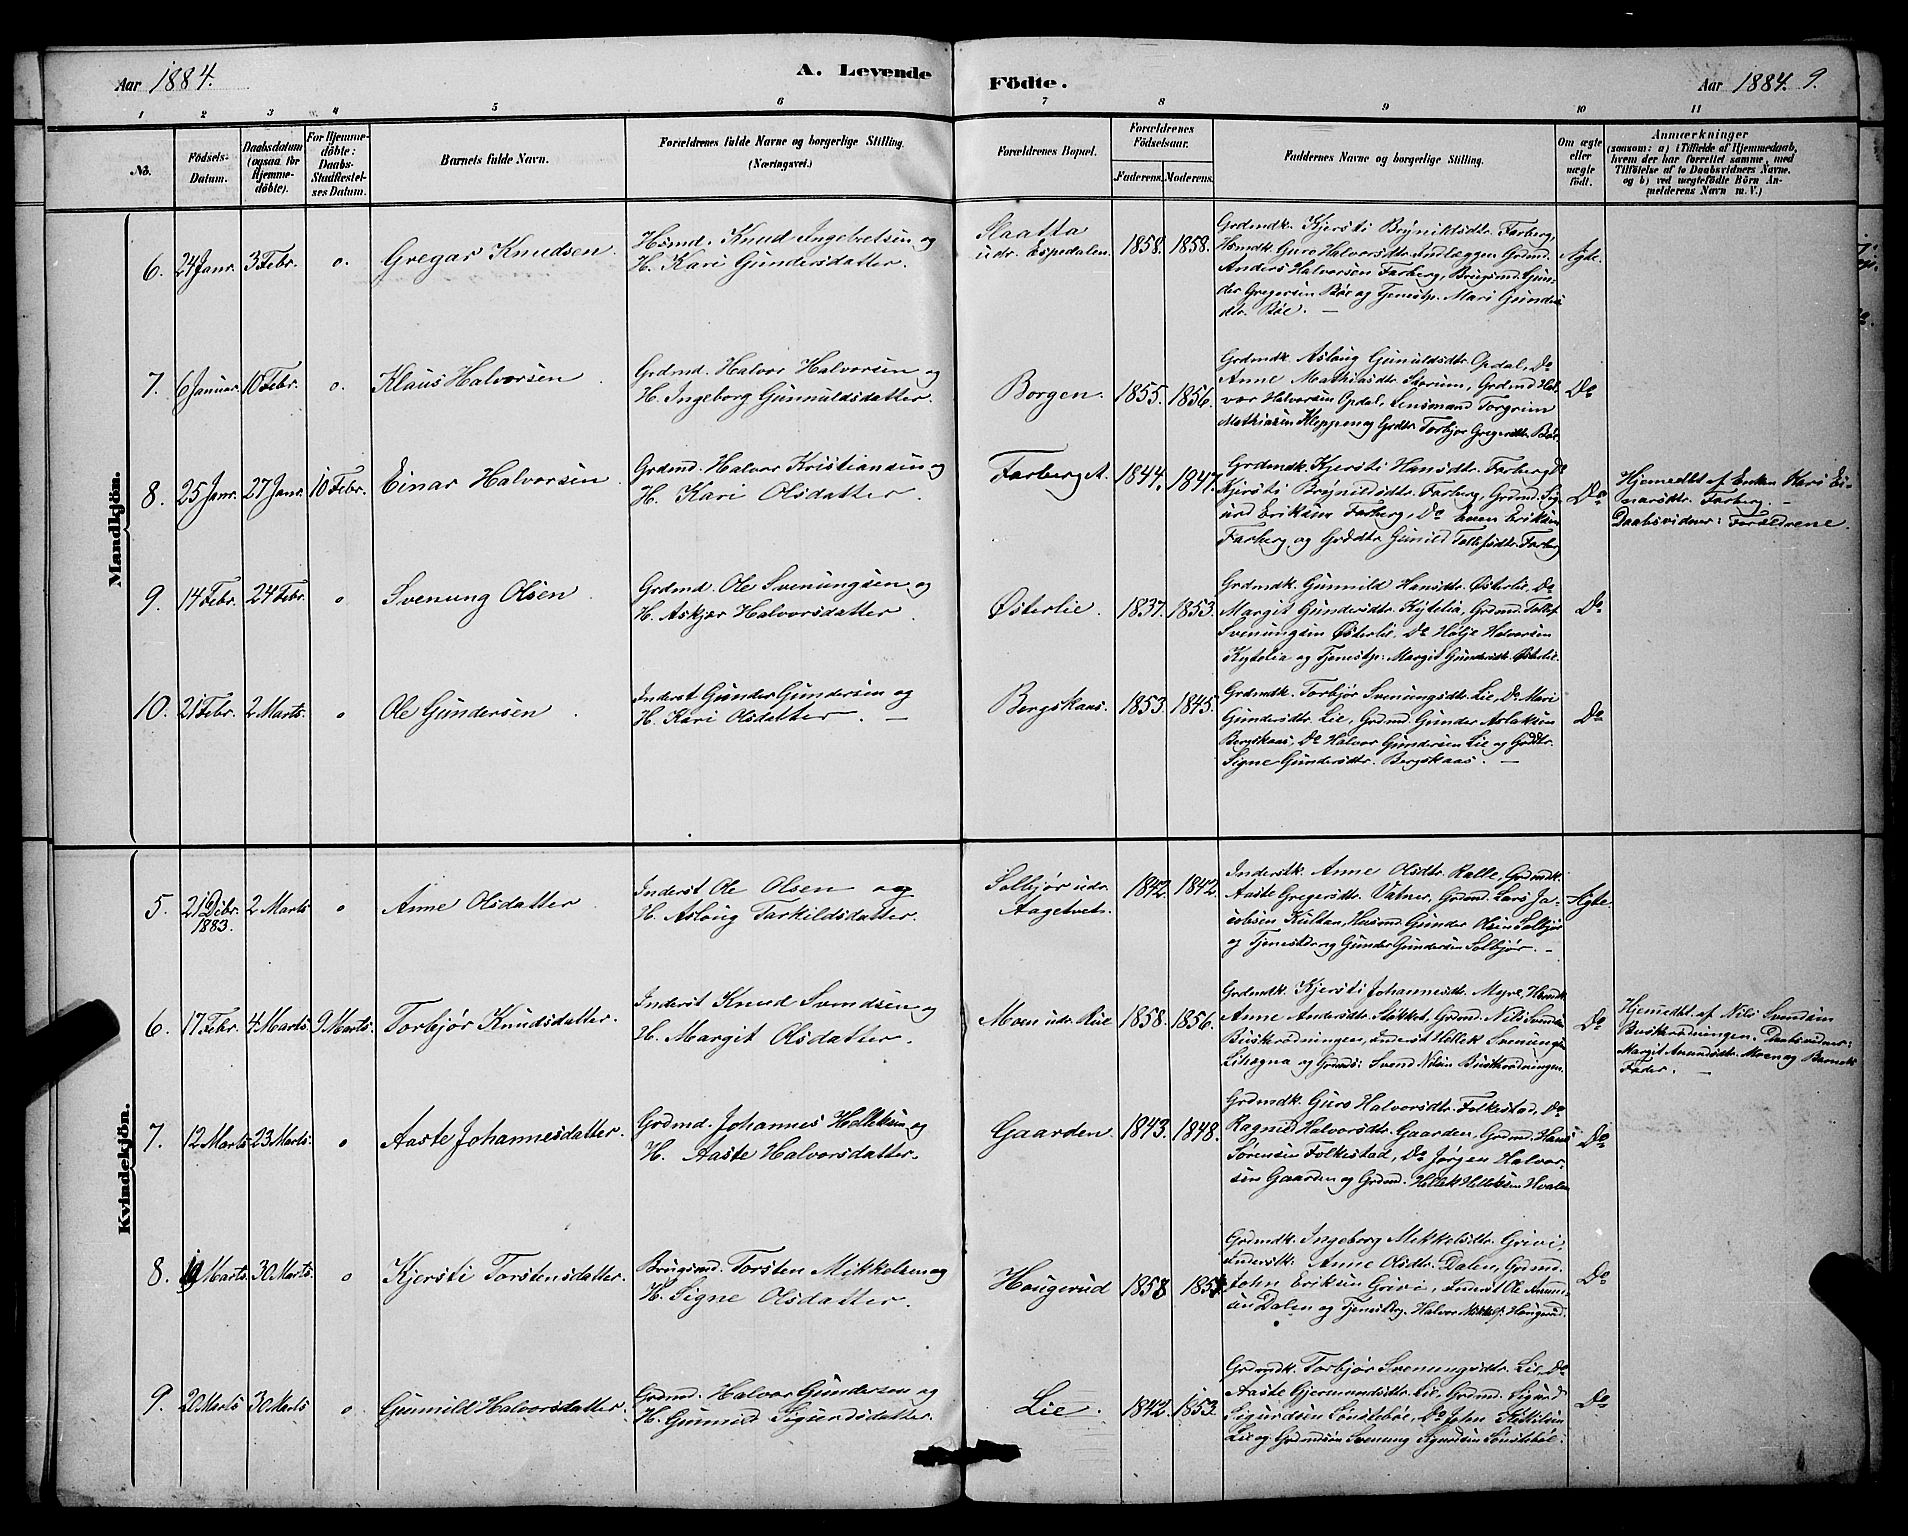 Aar 1884.
A. Levende
Födte.
Aar 1884. 9.
1 2 3 4 5 6 7 8 9 10 11
No.
Födsels-
Datum.
Daabsdatum
(ogsaa for
Hjemme-
döbte).
For Hjemme-
döbte:
Daabs-
Stadfæstel-
ses Datum.
Barnets fulde Navn.
Forældrenes fulde Navne og borgerlige Stilling.
(Næringsvei.)
Forældrenes Bopæl.
Forældrenes
Födselsaar.
Faderens.
Moderens.
Faddernes Navne og borgerlige Stilling.
Om ægte
eller
uægte
født.
Anmærkninger
(saasom: a) i Tilfælde af Hjemmedaab,
hvem der har forrettet samme, med
Tilföielse af to Daabsvidners Navne,
og b) ved uægtefödte Börn An-
melderens Navn m. V.)
Mandkjön.
6. 24 Janr. 3 Febr. o. Gregar Knudsen.
Hsmd. Knud Ingebretsen og
H. Kari Gundersdatter.
Slaatta
udr. Espedalen. 1858. 1858.
Grdmdk. Kjersti Brynildsdtr. Farberg,
Hsmdk. Guro Halvorsdtr. Indlæggen Grdmd.
Anders Halvorsen Farberg, Brugsmd. Gun-
der Gregersen Bøe og Tjenestp. Mari Gunders
dtr. Bøe. —
Ægte.
7. 6 Januar. 10 Febr. o. Klaus Halvorsen
Grdmd. Halvor Halvorsen og
H. Ingeborg Gunnuldsdatter.
Borgen. 1855. 1856.
Grdmdk. Aslaug Gunuldsdtr. Opdal, Do
Anne Mathiasdtr. Storum, Grdmd Hal-
vor Halvorsen Opdal, Lensmand Torgrim
Mathiasen Kleppen og Grdtr. Torbjør Gregersdtr. Bøe.
Do
8. 25 Janr. 27 Janr. 10 Febr. Einar Halvorsen.
Grdmd. Halvor Kristiansen og
H. Kari Olsdatter.
Farberg A. 1844. 1847.
Grdmdk. Kjersti Hansdtr. Farberg, Do
Kjersti Brynildsdtr. Farberg, Grdmd. Sig-
urd Eriksen Farberg, Do Even Eriksen
Farberg og Grdtr. Gunild Tollefsdtr. Farberg
Do
Hjemedbt af Enken Kari Ei-
narsdtr. Farberg. —
Daabsvidner: Forældrene.
9. 14 Febr. 24 Febr. o Svenung Olsen
Grdmd Ole Svenungsen og
H. Askjær Halvorsdatter
Østerlie. 1837. 1853.
Grdmdk. Gunnild Hansdtr. Østerlie, Do
Margit Gundersdtr. Kytelia, Grdmd. Tollef
Svenungsen Østerlie, Do Hølje Halvorsen
Kytelia og Tjenestp: Margit Gundersdtr. Østerlie.
Do
10. 21 Febr. 2 Marts. o Ole Gundersen
Inderst Gunder Gundersen og
H. Kari Olsdatter. —
Bergskaas. 1853. 1845.
Grdmdk. Torbjør Svenungsdtr. Lie, Do Mari
Gundersdtr. Lie, Grdmd. Gunder Aslaksen
Bergskaas, Do Halvor Gundersen Lie og Grdtr.
Signe Gundersdtr. Bergskaas. —
Do
Kvindekjön.
5. 21 Debr. 2 Marts o Anne Olsdatter
1883.
Inderst Ole Olsen og
H. Aslaug Tarkildsdatter.
Solbjør udr.
Aagetveit. 1842. 1842.
Inderstk. Anne Olsdtr. Kalle, Grdmdk
Aaste Gregersdtr. Vatnar, Grdmd. Lars Ja-
cobsen Kultan, Husmd. Gunder Olsen Solbjør
og Tjenestkarl Gunder Gundersen Solbjør. —
Ægte.
6. 17 Febr. 4 Marts. 9 Marts. Torbjør Knudsdatter.
Inderst Knud Svendsen og
H. Margit Olsdatter.
Moen udr. Riie 1858. 1856.
Grdmdk. Kjersti Johannesdtr. Myre, Hsmdk
Anne Andersdtr. Slokket, Grdmd. Nils Svendsen
Buskrødningen, inderst Hellek Svenungsen
Lihagna og Grdmds: Svend Nilsen Buskrødningen.
Do
Hjemedbt. af Nils Svendsen
Buskrødningen. Daabsvidner:
Margit Amundsdtr. Moen og Barnets
Fader. —
7. 12 Marts 23 Marts. o Aaste Johannesdatter.
Grdmd. Johannes Helleksen og
H. Aaste Halvorsdatter.
Gaarden. 1843. 1848.
Grdmdk. Guro Halvorsdtr. Folkestad, Do
Ragnild Halvorsdtr. Gaarden, Grdmd. Hans
Sørensen Folkestad, Do Jørgen Halvor-
sen Gaarden og Grdmd. Hellek Helleksen Hvalen
Do
8. Marts. 30 Marts. o Kjersti Torstensdatter.
Brugsmd. Torsten Mikkelsen og
H. Signe Olsdatter.
Haugerud 1858
Grdmdk. Ingeborg Mekkelsdtr. Grivi,
Inderstk. Anne Olsdtr. Dalen, Grdmd.
John Eriksen Grivi, Inderst Ole Amund-
sen Dalen og Tjenestkarl. Halvor Mikkelsen Haugerud.
Do
9. 20 Marts 30 Marts o Gunnild Halvorsdatter.
Grdmd. Halvor Gundersen og
H. Gunnild Sigurdsdatter.
Lie. 1842. 1853.
Grdmdk. Torbjør Svenungsdtr. Lie, Do
Aaste Gjermundsdtr. Lie, Grdmd. Sigurd
Sigurdsen Sønstebøe, Do John Kittilsen
Lie og Grdmdsøn Svenung Sigurdsen Sønstebøe.
Do